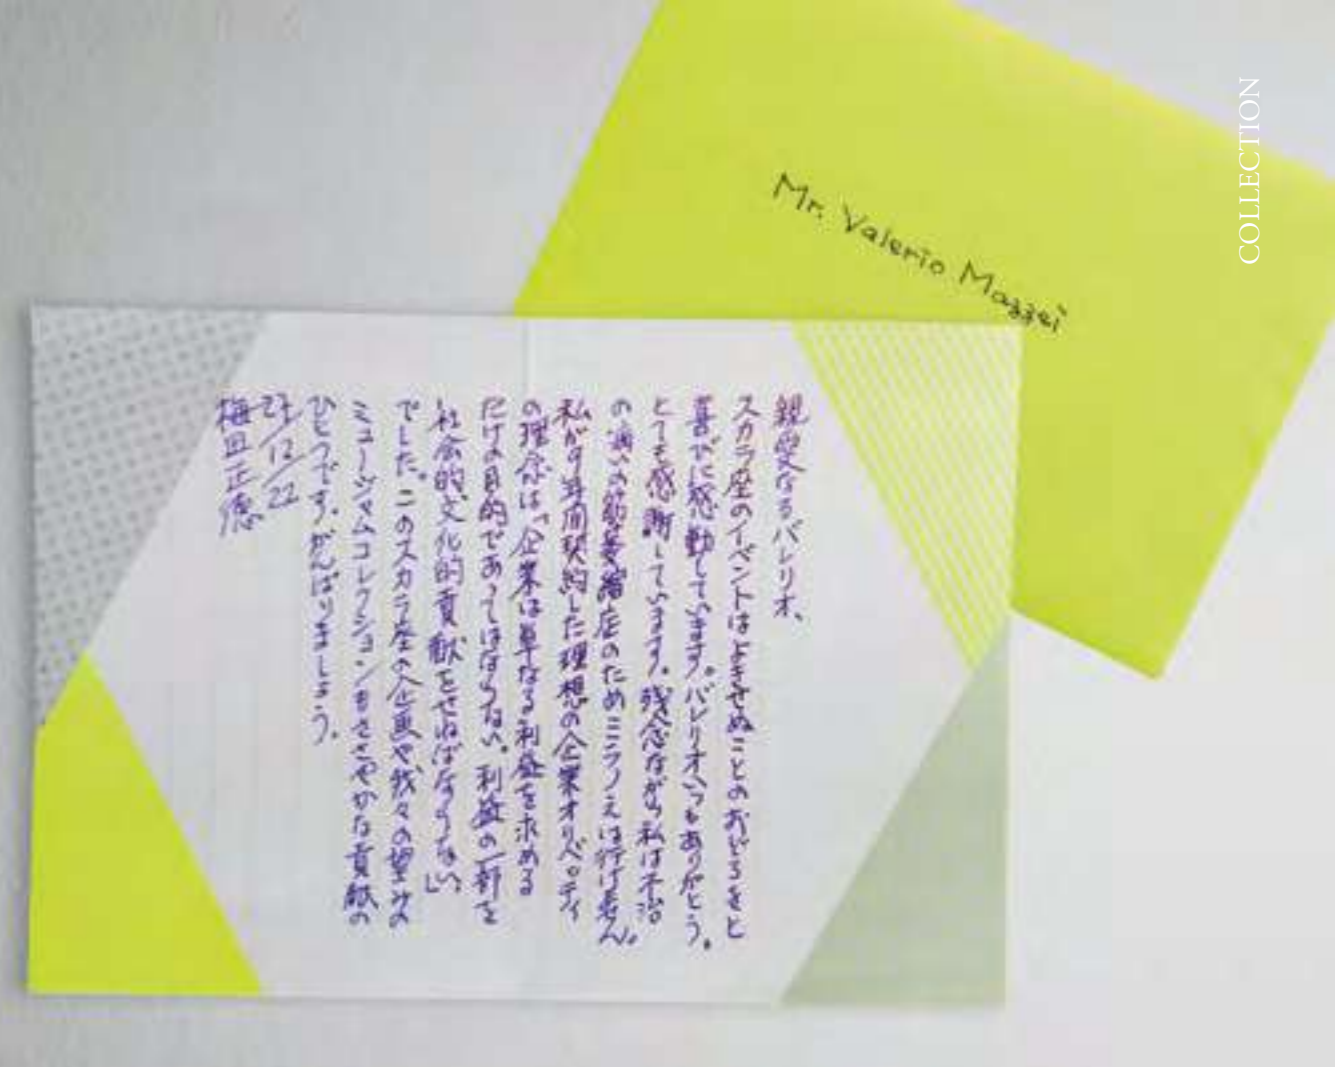 COLLECTION
Mr. Valerio Mazzei
親愛なるバレリオ、
スカラ座のイベントはよきせぬことのおどろきと
喜びに感動しています。バレリオいつもありがとう。
とても感謝しています。残念ながら私は不治
の病いの筋萎縮症のためミラノえは行けません。
私が9年間契約した理想の企業オリベッティ
の理念は、「企業は単なる利益を求める
だけの目的であってはならない。利益の一部を
社会的文化的貢献をせねばならない」
でした。このスカラ座の企画や我々の望みの
ミュージャムコレクションもささやかな貢献の
ひとつです。がんばりましょう。
27/12/22
梅田正徳